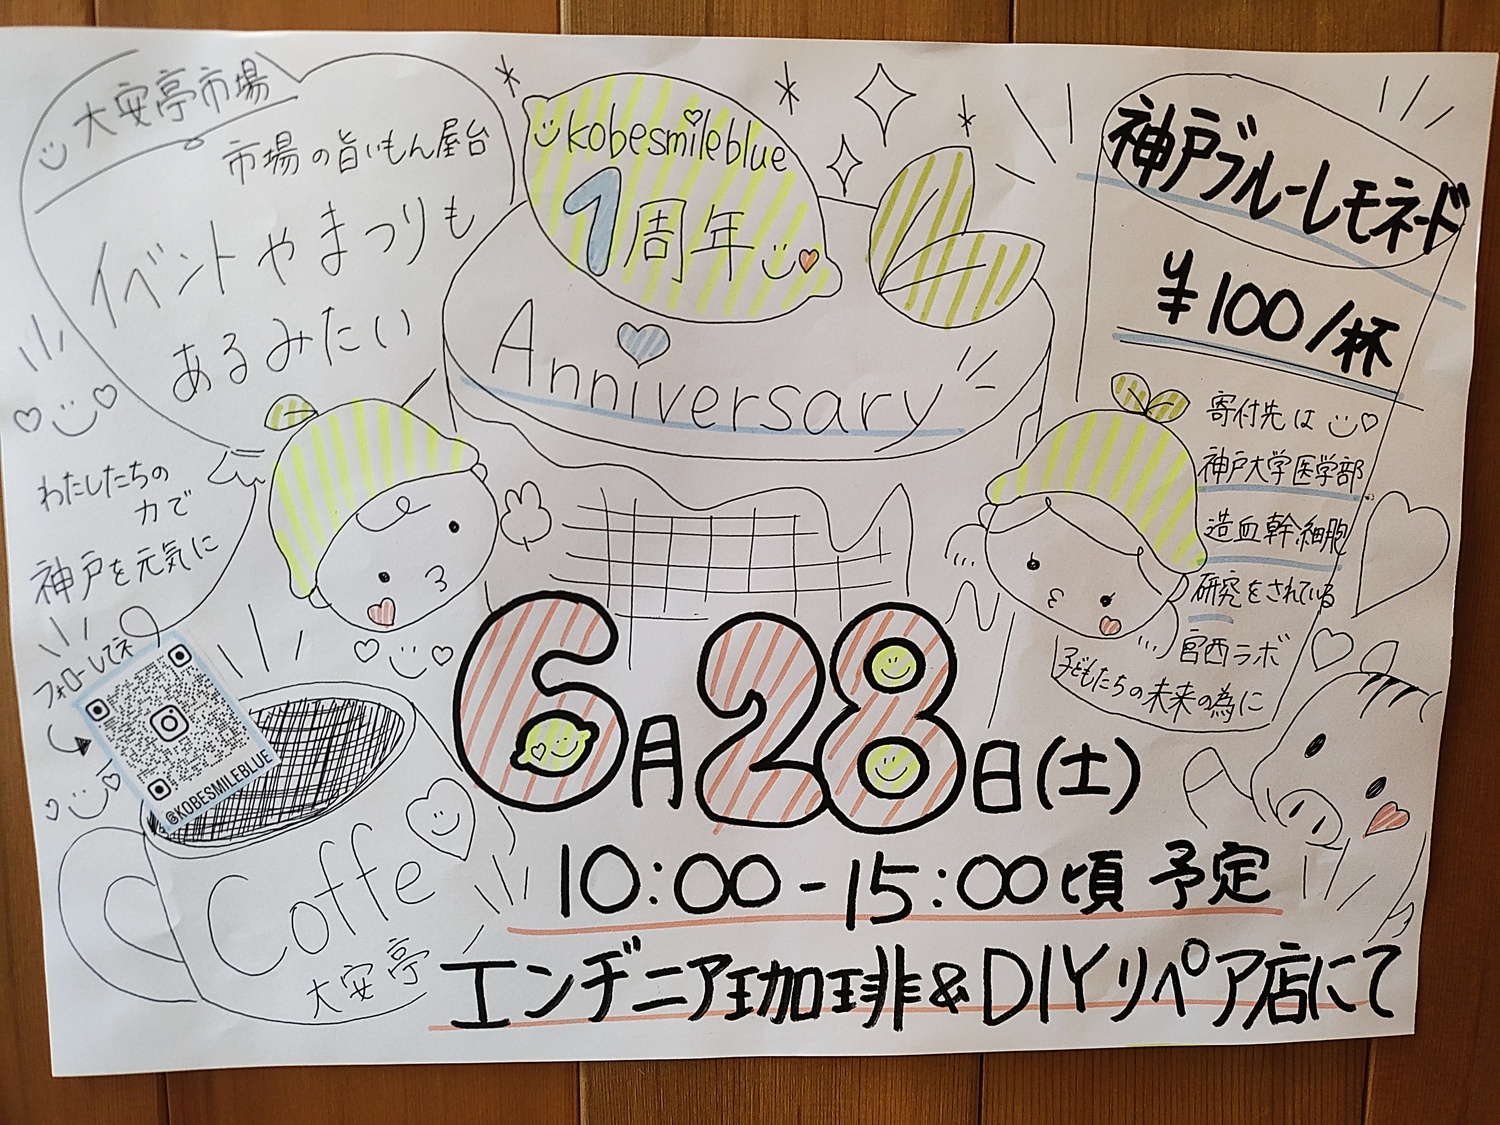 大安亭市場
市場の旨いもん屋台
イベントやまつりも
あるみたい
kobesmileblue
1周年
Anniversary
神戸ブルーレモネード
¥100/杯
寄付先は
神戸大学医学部
造血幹細胞
研究をされている
宮西ラボ
子どもたちの未来の為に
わたしたちの
力で
神戸を元気に
フォローしてネ
@KOBESMILEBLUE
Coffe
大安亭
6月28日(土)
10:00-15:00頃 予定
エンヂニア珈琲&DIYリペア店にて